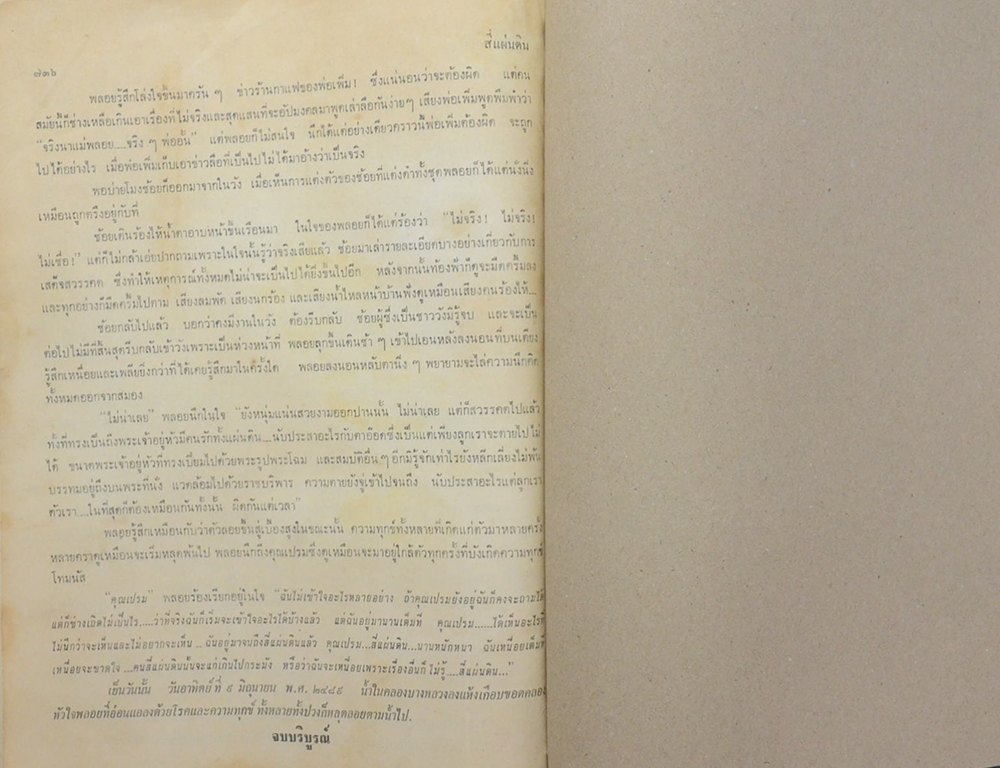 สี่แผ่นดิน
๗๓๖
พลอยรู้สึกโล่งใจขึ้นมาครัน ๆ ข่าวร้านกาแฟของพ่อเพิ่ม! ซึ่งแน่นอนว่าจะต้องผิด แต่คน
สมัยนี้ก็ช่างเหลือเกินเอาเรื่องที่ไม่จริงและสุดแสนที่จะอัปมงคลมาพูดเล่าลือกันง่ายๆ เสียงพ่อเพิ่มพูดพึมพำว่า
"จริงนาแม่พลอย....จริง ๆ พ่ออั้น" แต่พลอยก็ไม่สนใจ นึกได้แต่อย่างเดียวคราวนี้พ่อเพิ่มต้องผิด จะถูก
ไปได้อย่างไร เมื่อพ่อเพิ่มเก็บเอาข่าวลือที่เป็นไปไม่ได้มาอ้างว่าเป็นจริง
พอบ่ายโมงช้อยก็ออกมาจากในวัง เมื่อเห็นการแต่งตัวของช้อยที่แต่งดำทั้งชุดพลอยก็ได้แต่นั่งนิ่ง
เหมือนถูกตรึงอยู่กับที่
ช้อยเดินร้องไห้น้ำตาอาบหน้าขึ้นเรือนมา ในใจของพลอยก็ได้แต่ร้องว่า "ไม่จริง! ไม่จริง!
ไม่เชื่อ!" แต่ก็ไม่กล้าเอ่ยปากถามเพราะในใจนั้นรู้ว่าจริงเสียแล้ว ช้อยมาเล่ารายละเอียดบางอย่างเกี่ยวกับการ
เสด็จสวรรคต ซึ่งทำให้เหตุการณ์ทั้งหมดไม่น่าจะเป็นไปได้ยิ่งขึ้นไปอีก หลังจากนั้นท้องฟ้าก็ดูจะมืดครึ้มลง
และทุกอย่างก็มืดครึ้มไปตาม เสียงลมพัด เสียงนกร้อง และเสียงน้ำไหลหน้าบ้านฟังดูเหมือนเสียงคนร้องไห้....
ช้อยกลับไปแล้ว บอกว่าคงมีงานในวัง ต้องรีบกลับ ช้อยผู้ซึ่งเป็นชาววังมิรู้จบ และจะเป็น
ต่อไปไม่มีที่สิ้นสุดรีบกลับเข้าวังเพราะเป็นห่วงหน้าที่ พลอยลุกขึ้นเดินช้า ๆ เข้าไปเอนหลังลงนอนที่บนเตียง
รู้สึกเหนื่อยและเพลียยิ่งกว่าที่ได้เคยรู้สึกมาในครั้งใด พลอยลงนอนหลับตานิ่ง ๆ พยายามจะไล่ความนึกคิด
ทั้งหมดออกจากสมอง
"ไม่น่าเลย" พลอยนึกในใจ "ยังหนุ่มแน่นสวยงามออกปานนั้น ไม่น่าเลย แต่ก็สวรรคตไปแล้ว
ทั้งที่ทรงเป็นถึงพระเจ้าอยู่หัวมีคนรักทั้งแผ่นดิน...นับประสาอะไรกับตาอ๊อดซึ่งเป็นแต่เพียงลูกเราจะตายไปไม่
ได้ ขนาดพระเจ้าอยู่หัวที่ทรงเปี่ยมไปด้วยพระรูปพระโฉม และสมบัติอื่นๆ อีกมิรู้จักเท่าไรยังหลีกเลี่ยงไม่พ้น
บรรทมอยู่ถึงบนพระที่นั่ง แวดล้อมไปด้วยราชบริพาร ความตายยังจู่เข้าไปจนถึง นับประสาอะไรแต่ลูกเรา
ตัวเรา....ในที่สุดก็ต้องเหมือนกันทั้งนั้น ผิดกันแต่เวลา"
พลอยรู้สึกเหมือนกับว่าตัวลอยขึ้นสู่เบื้องสูงในขณะนั้น ความทุกข์ทั้งหลายที่เกิดแก่ตัวมาหลายครั้ง
หลายคราดูเหมือนจะเริ่มหลุดพ้นไป พลอยนึกถึงคุณเปรมซึ่งดูเหมือนจะมาอยู่ใกล้ตัวทุกครั้งที่บังเกิดความทุกข์
โทมนัส
"คุณเปรม" พลอยร้องเรียกอยู่ในใจ "ฉันไม่เข้าใจอะไรหลายอย่าง ถ้าคุณเปรมยังอยู่ฉันก็คงจะถามได้
แต่ก็ช่างเถิดไม่เป็นไร.....ว่าที่จริงฉันก็เริ่มจะเข้าใจอะไรได้บ้างแล้ว แต่ฉันอยู่มานานเต็มที คุณเปรม......ได้เห็นอะไรที่
ไม่นึกว่าจะเห็นและไม่อยากจะเห็น .. ฉันอยู่มาจนถึงสี่แผ่นดินแล้ว คุณเปรม...สี่แผ่นดิน...นานหนักหนา ฉันเหนื่อยเต็มที
เหนื่อยจะขาดใจ ...คนสี่แผ่นดินนั้นจะแก่เกินไปกระมัง หรือว่าฉันจะเหนื่อยเพราะเรื่องอื่นก็ไม่รู้ ...สี่แผ่นดิน..."
เย็นวันนั้น วันอาทิตย์ที่ ๙ มิถุนายน พ.ศ. ๒๔๘๙ น้ำในคลองบางหลวงลงแห้งเกือบขอดคลอง
หัวใจพลอยที่อ่อนแอลงด้วยโรคและความทุกข์ ทั้งหลายทั้งปวงก็หลุดลอยตามน้ำไป.
จบบริบูรณ์